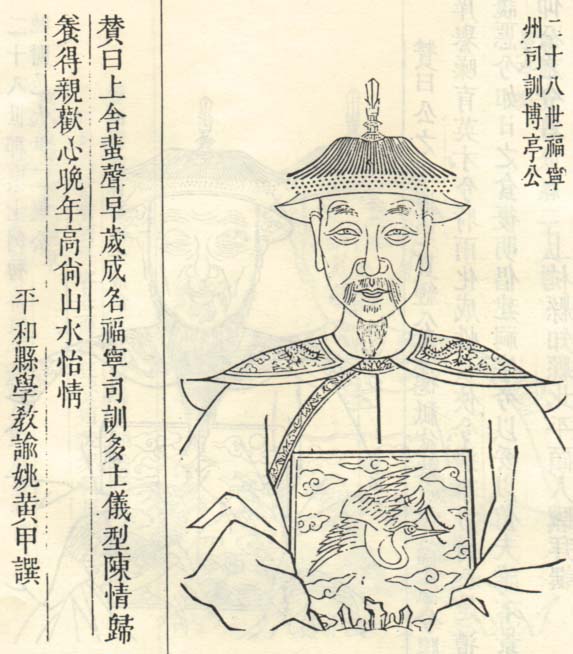 二十八世福寧
州司訓博亭公
贊曰上舍蜚聲早歲成名福寧司訓多士儀型陳情歸
養得親歡心晚年高尙山水怡情
平和縣學教諭姚黄甲譔